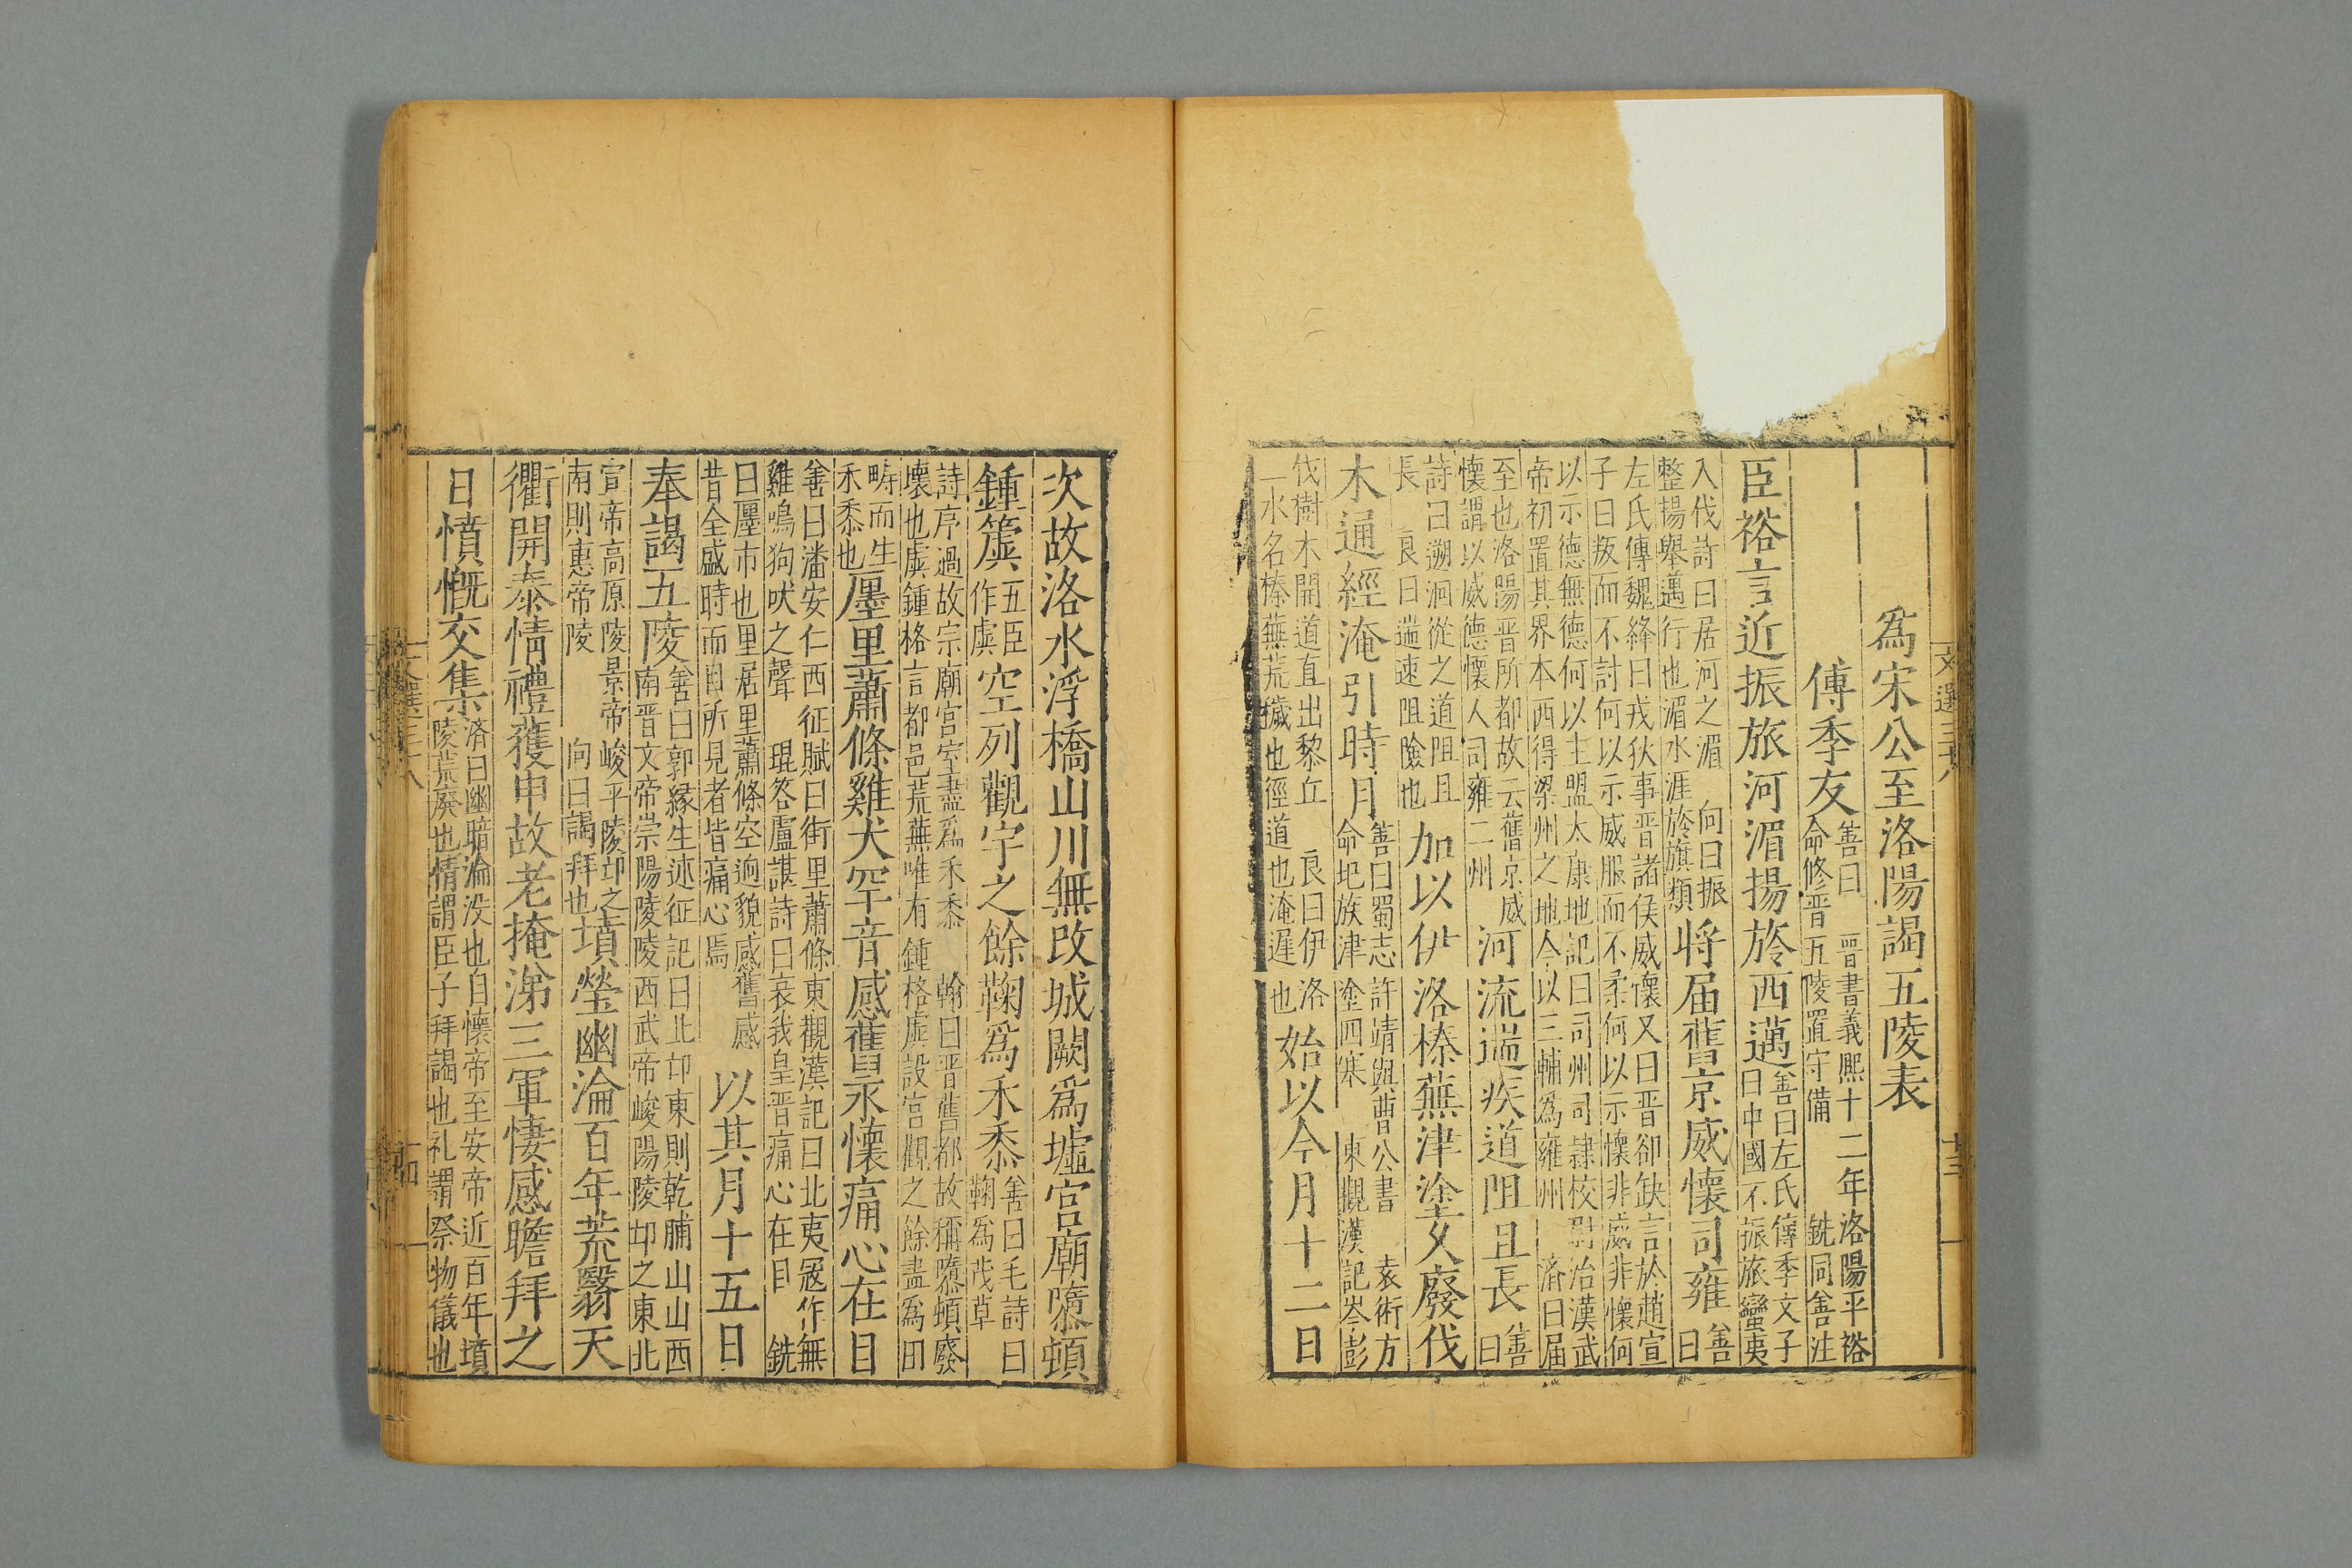 爲宋公至洛陽謁五陵表
傅季友善曰晉書義熙十二年洛陽平裕命修晉五陵置守備銑同善注
臣裕言近振旅河湄揚旍西邁善曰左氏傳季文子曰中國不振旅蠻夷
入伐詩曰居河之湄向曰振整揚舉邁行也湄水涯旍旗類將届舊京威懷司雍善曰
左氏傳魏絳曰戎狄事晉諸侯威懷又曰晉郤缺言於趙宣子曰叛而不討何以示威服而不柔何以示懷非威非懷何
以示德無德何以主盟太康地記曰司州司隷校尉治漢武帝初置其界本西得梁州之地今以三輔爲雍州濟曰届
至也洛陽晉所都故云舊京威懷謂以威德懷人司雍二州河流遄疾道阻且長善曰
詩曰遡洄從之道阻且長良曰遄速阻險也加以伊洛榛蕪津塗久廢伐
木通經淹引時月善曰蜀志許靖與曹公書袁術方命圯族津塗四塞東觀漢記岑彭
伐樹木開道直出黎丘良曰伊洛二水名榛蕪荒穢也徑道也淹遲也始以今月十二日
次故洛水浮橋山川無改城闕爲墟宫廟隳頓
鍾簴五臣作虡空列觀宇之餘鞠爲禾黍善曰毛詩曰鞠爲茂草
詩序過故宗廟宫室盡爲禾黍翰曰晉舊都故稱隳頓廢壞也虡鍾格言都邑荒蕪唯有鍾格虡設宫觀之餘盡爲田
疇而生禾黍也㕓里蕭條雞犬罕音感舊永懷痛心在目
善曰潘安仁西征賦曰街里蕭條東觀漢記曰北夷冦作無雞鳴狗吠之聲琨答盧諶詩曰哀我皇晉痛心在目銑
曰㕓市也里居里蕭條空逈貌感舊感昔全盛時而目所見者皆痛心焉以其月十五日
奉謁五陵善曰郭縁生述征記曰北邙東則乾脯山山西南晉文帝崇陽陵陵西武帝峻陽陵邙之東北
宣帝高原陵景帝峻平陵邙之南則惠帝陵向曰謁拜也墳塋幽淪百年荒翳天
衢開泰情禮獲申故老掩涕三軍悽感瞻拜之
日憤慨交集濟曰幽暗淪没也自懷帝至安帝近百年墳陵荒廢也情謂臣子拜謁也礼謂祭物儀也